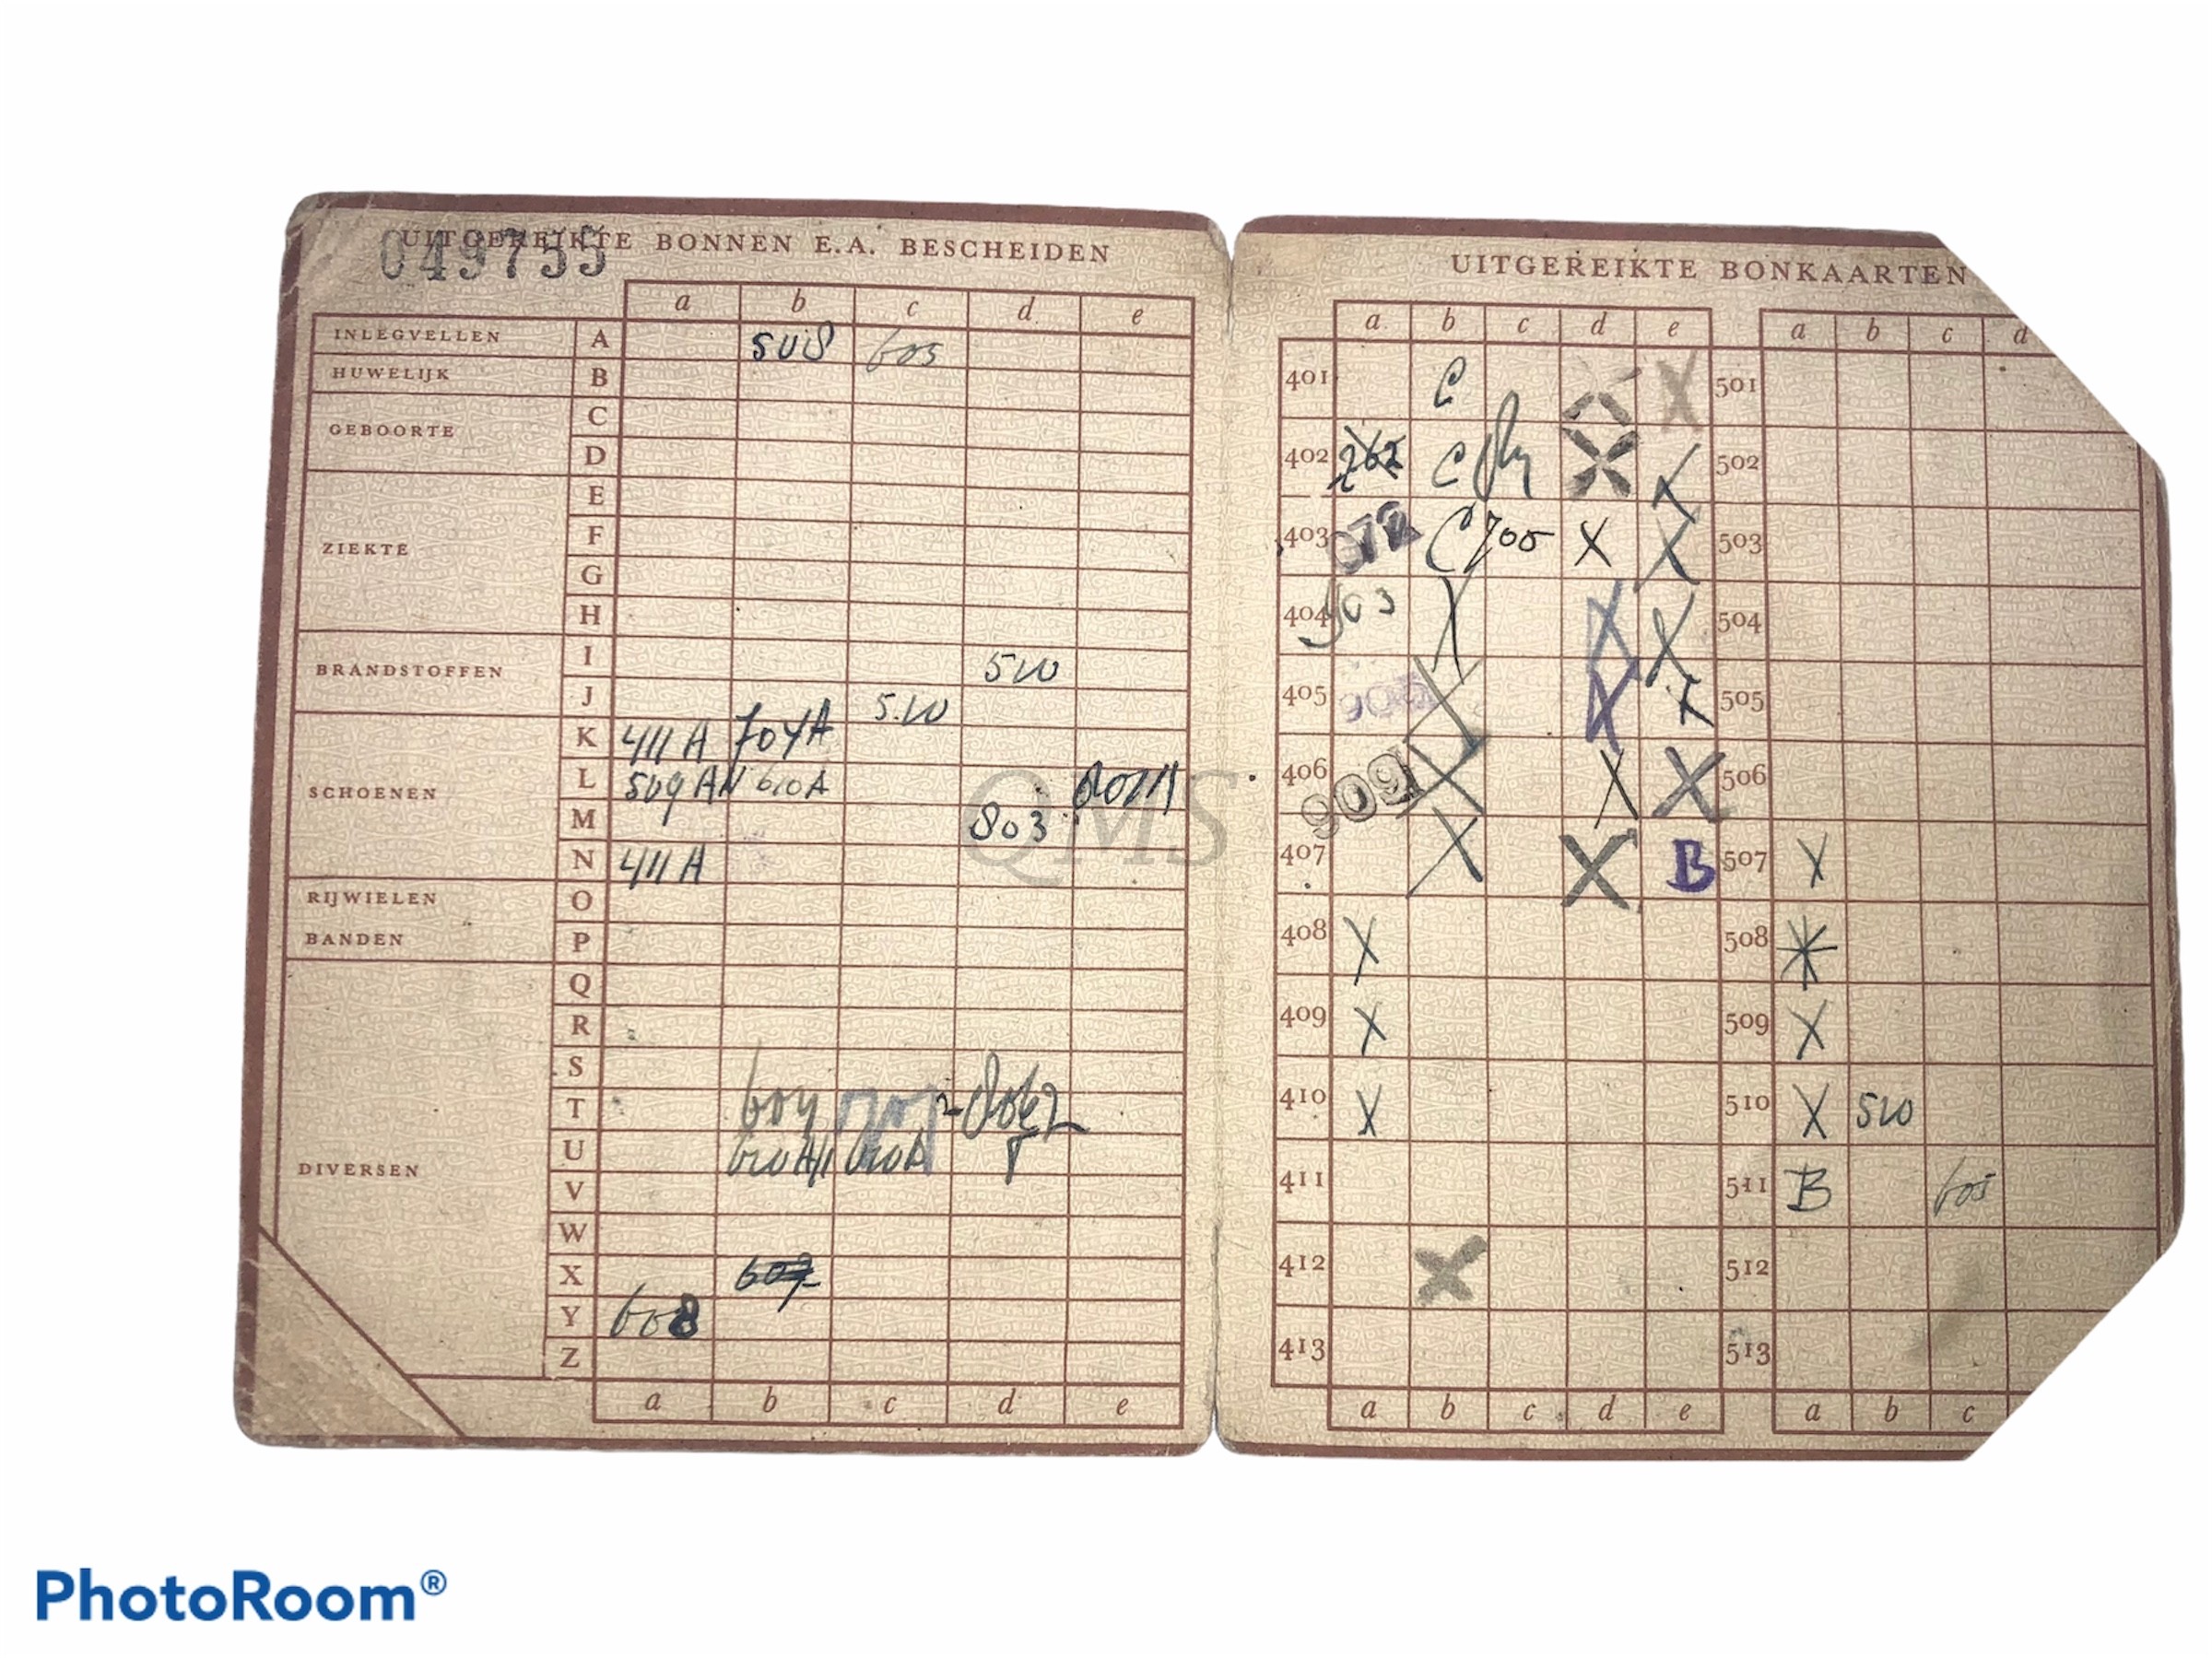 049755
UITGEREIKTE BONNEN E.A. BESCHEIDEN
a b c d e
INLEGVELLEN A 508 605
HUWELIJK B
GEBOORTE C
D
E
ZIEKTE F
G
H
BRANDSTOFFEN I 510
J 510
K 411 A 704A
SCHOENEN L 509 AN 610A
M 803
N 411 A
RIJWIELEN O
BANDEN P
Q
R
S
T 604
DIVERSEN U
V
W
X 607
Y 608
Z
a b c d e
UITGEREIKTE BONKAARTEN
a b c d e a b c d
401 C X 501
402 262 C X X 502
403 072 C 705 X X 503
404 903 X X X 504
405 X X X 505
406 909 X X X 506
407 X X B 507 X
408 X 508
409 X 509 X
410 X 510 X 510
411 511 B 605
412 X 512
413 513
a b c d e a b c
QMS
PhotoRoom®